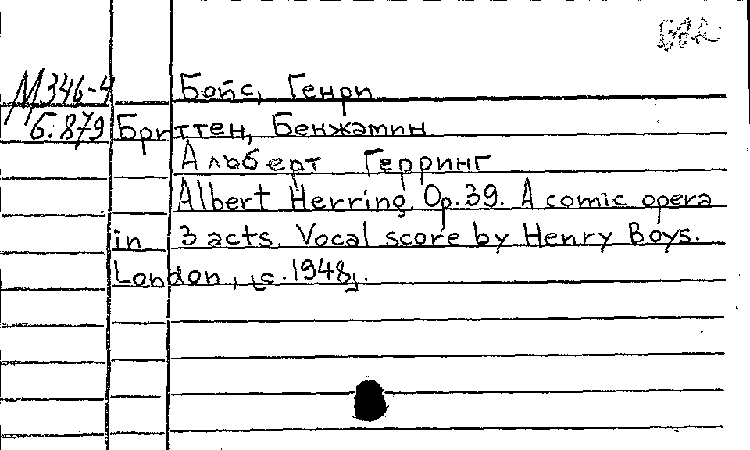 М346-4 Бойс, Генри
Б.879 Бриттен, Бенжамин
Альберт Герринг
Albert Herring Op.39. A comic opera
in 3 acts. Vocal score by Henry Boys.
London, [c.1948].